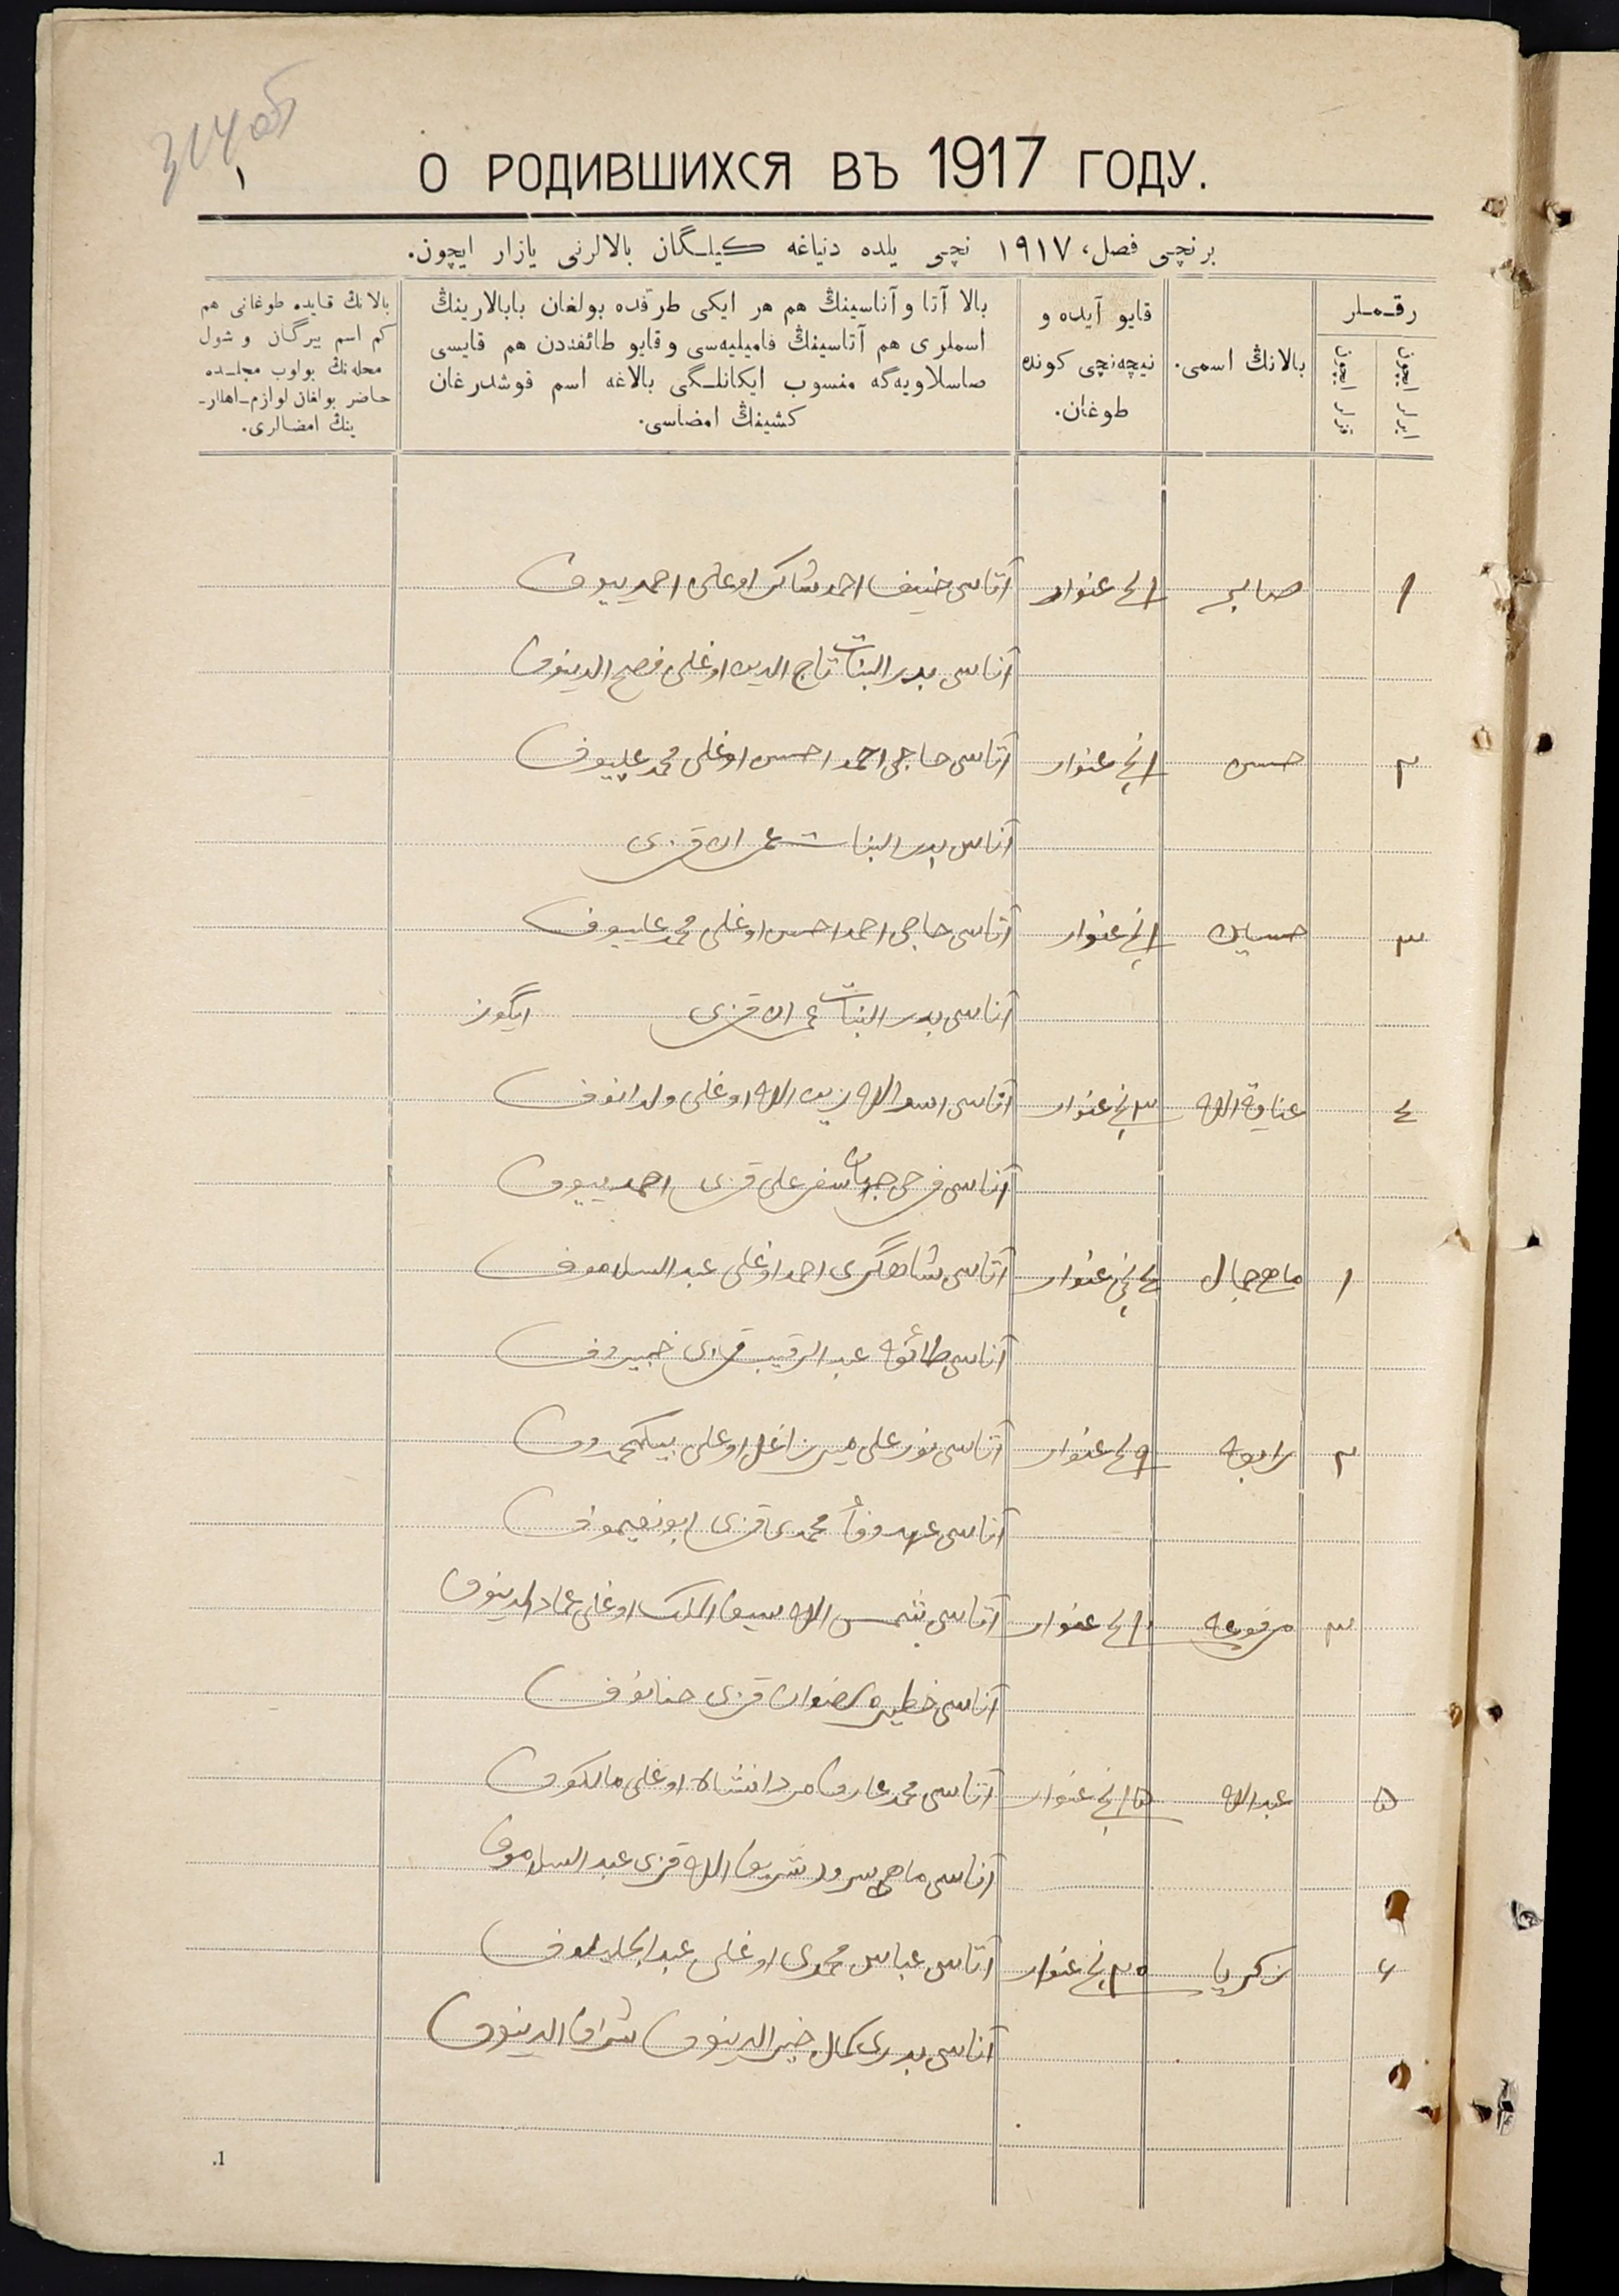 314 об
١
О РОДИВШИХСЯ ВЪ 1917 ГОДУ.
برنچی فصل، ١٩١٧ نچی یلده دنیاغه كیلـگان بالالرنی یازار ایچون.
رقـمـلر
ایرلر ایچون
قزلر ایچون
بالانڭ اسمی.
قایو آیده و
نیچه‌نچی كونده
طوغان.
بالا آتا و آناسینڭ هم هر ایكی طرفده بولغان بابالارینڭ
اسملری هم آتاسینڭ فامیلیه‌سی و قایو طائفندن هم قایسی
صاسلاویه‌گه منسوب ایكانلـگی بالاغه اسم قوشدرغان
كشینڭ امضاسی.
بالانڭ قایده طوغانی هم
كم اسم بیرگان و شول
محله‌نڭ بولوب مجلـده
حاضر بولغان لوازم‌ـ‌اهللر‌ـ
ینڭ امضالری.
١ صابر ١ نچی غنوار آتاسی حنیف احمدشاكر اوغلی احمدییوف
آناسی بدر البنات تاج الدین اوغلی فصح الدینوف
٢ حسن ١ نچی غنوار آتاسی حاجی احمد احسن اوغلی محمدعلییوف
آناسی بدر البنات عمران قزی
٣ حسین ١ نچی غنوار آتاسی حاجی احمد احسن اوغلی محمدعلییوف
آناسی بدر البنات عمران قزی ایگوز
٤ عنایة الله ٣ نچی غنوار آتاسی اسد الله زین الله اوغلی ولدانوف
آناسی فرحی جهان سفرعلی قزی احمدییوف
١ ماهی جمال ٤ نچی غنوار آتاسی شاهگری احمد اوغلی عبد السلاموف
آناسی طائفه عبد الرقیب قزی خبیروف
٢ رابعه ٩ نچی غنوار آتاسی نورعلی میرزاغل اوغلی بیكمحمدوف
آناسی عهد وفا محمدی قزی ابونعیموف
٣ مرفوعه ١٠ نچی غنوار آتاسی شمس الله سیف الملك اوغلی عماد الدینوف
آناسی خطیره رضوان قزی حنانوف
٥ عبد الله ١٥ نچی غنوار آتاسی محمدعارف مردانشاه اوغلی مالكوف
آناسی ماهی سرور شریف الله قزی عبد السلاموف
٦ زكریا ٢٠ نچی غنوار آتاسی عباس محمدی اوغلی عبد الجلیلوف
آناسی بدری كمال خیر الدینوف شرف الدینوف
1.